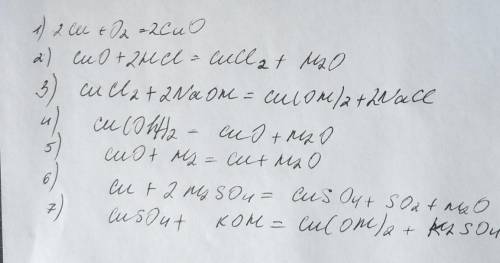 1) 2Cu + O2 = 2CuO
2) CuO + 2HCl = CuCl2 + H2O
3) CuCl2 + 2NaOH = Cu(OH)2 + 2NaCl
4) Cu(OH)2 = CuO + H2O
5) CuO + H2 = Cu + H2O
6) Cu + 2H2SO4 = CuSO4 + SO2 + H2O
7) CuSO4 + KOH = Cu(OH)2 + K2SO4